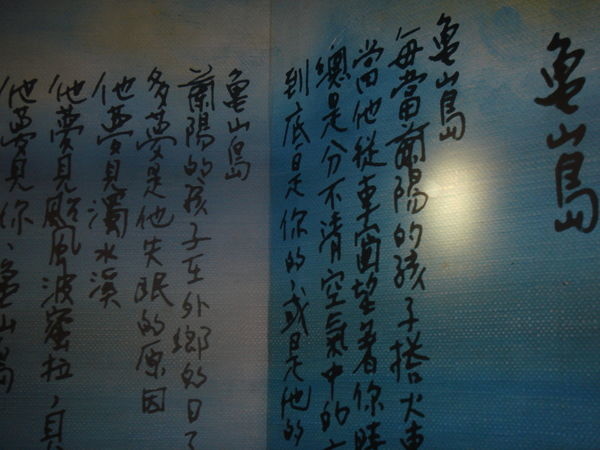 龜山島
龜山島
每當蘭陽的孩子搭火車
當他從車窗望着你時
總是分不清空氣中的
到底是你的、或是他的
龜山島
蘭陽的孩子在外鄉的日子
多夢是他失眠的原因
他夢見濁水溪
他夢見颱風波蜜拉、貝
他夢見你、龜山島